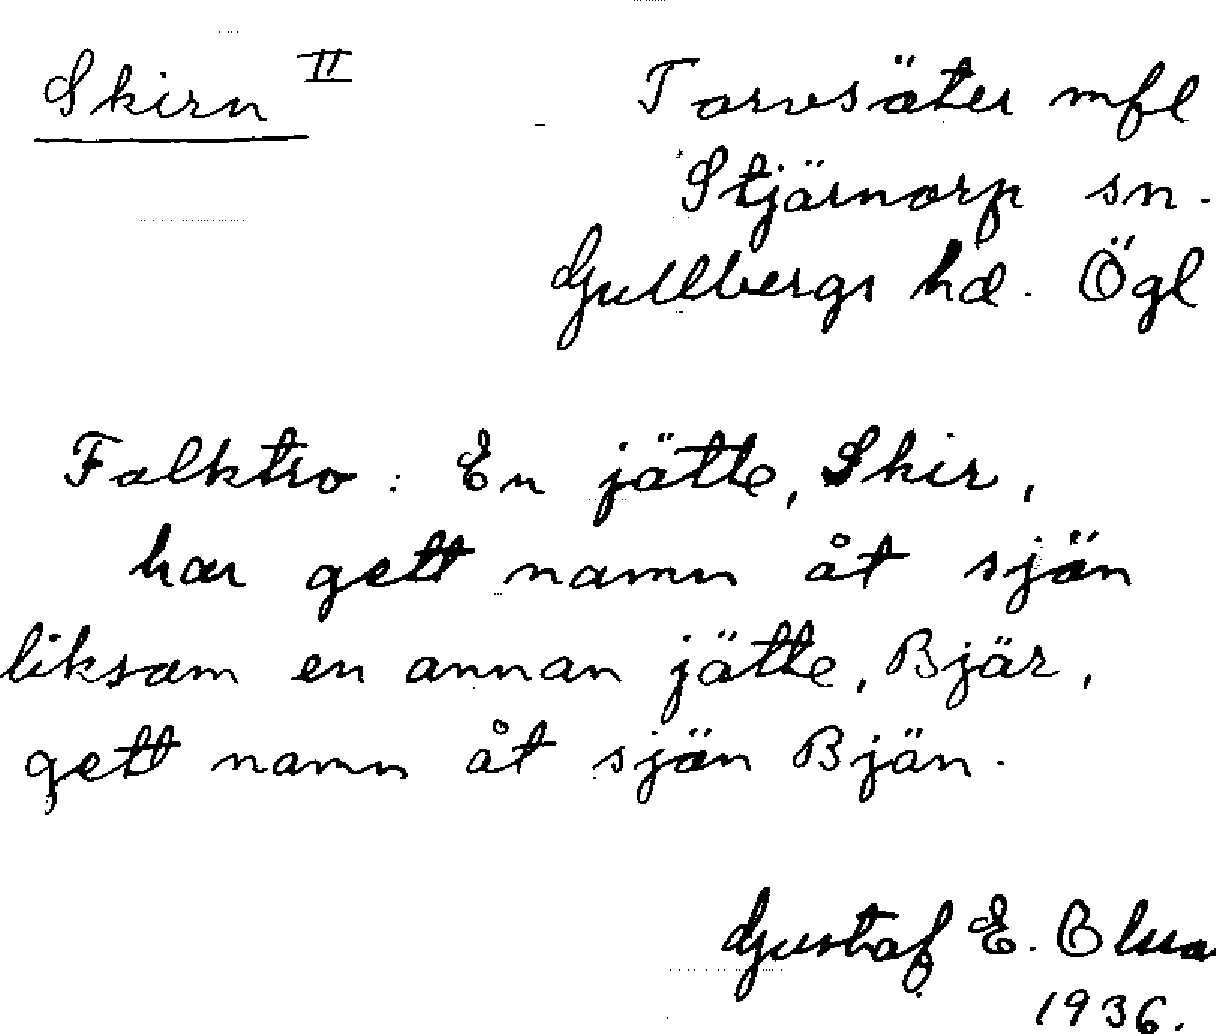 Skirn II Torvsäter mfl
Stjärnorp sn.
Gullbergs hd. Ögl
Folktro: En jätte, Skir,
har gett namn åt sjön
liksom en annan jätte, Bjär,
gett namn åt sjön Bjän.
Gustaf E. Olsso
1936.